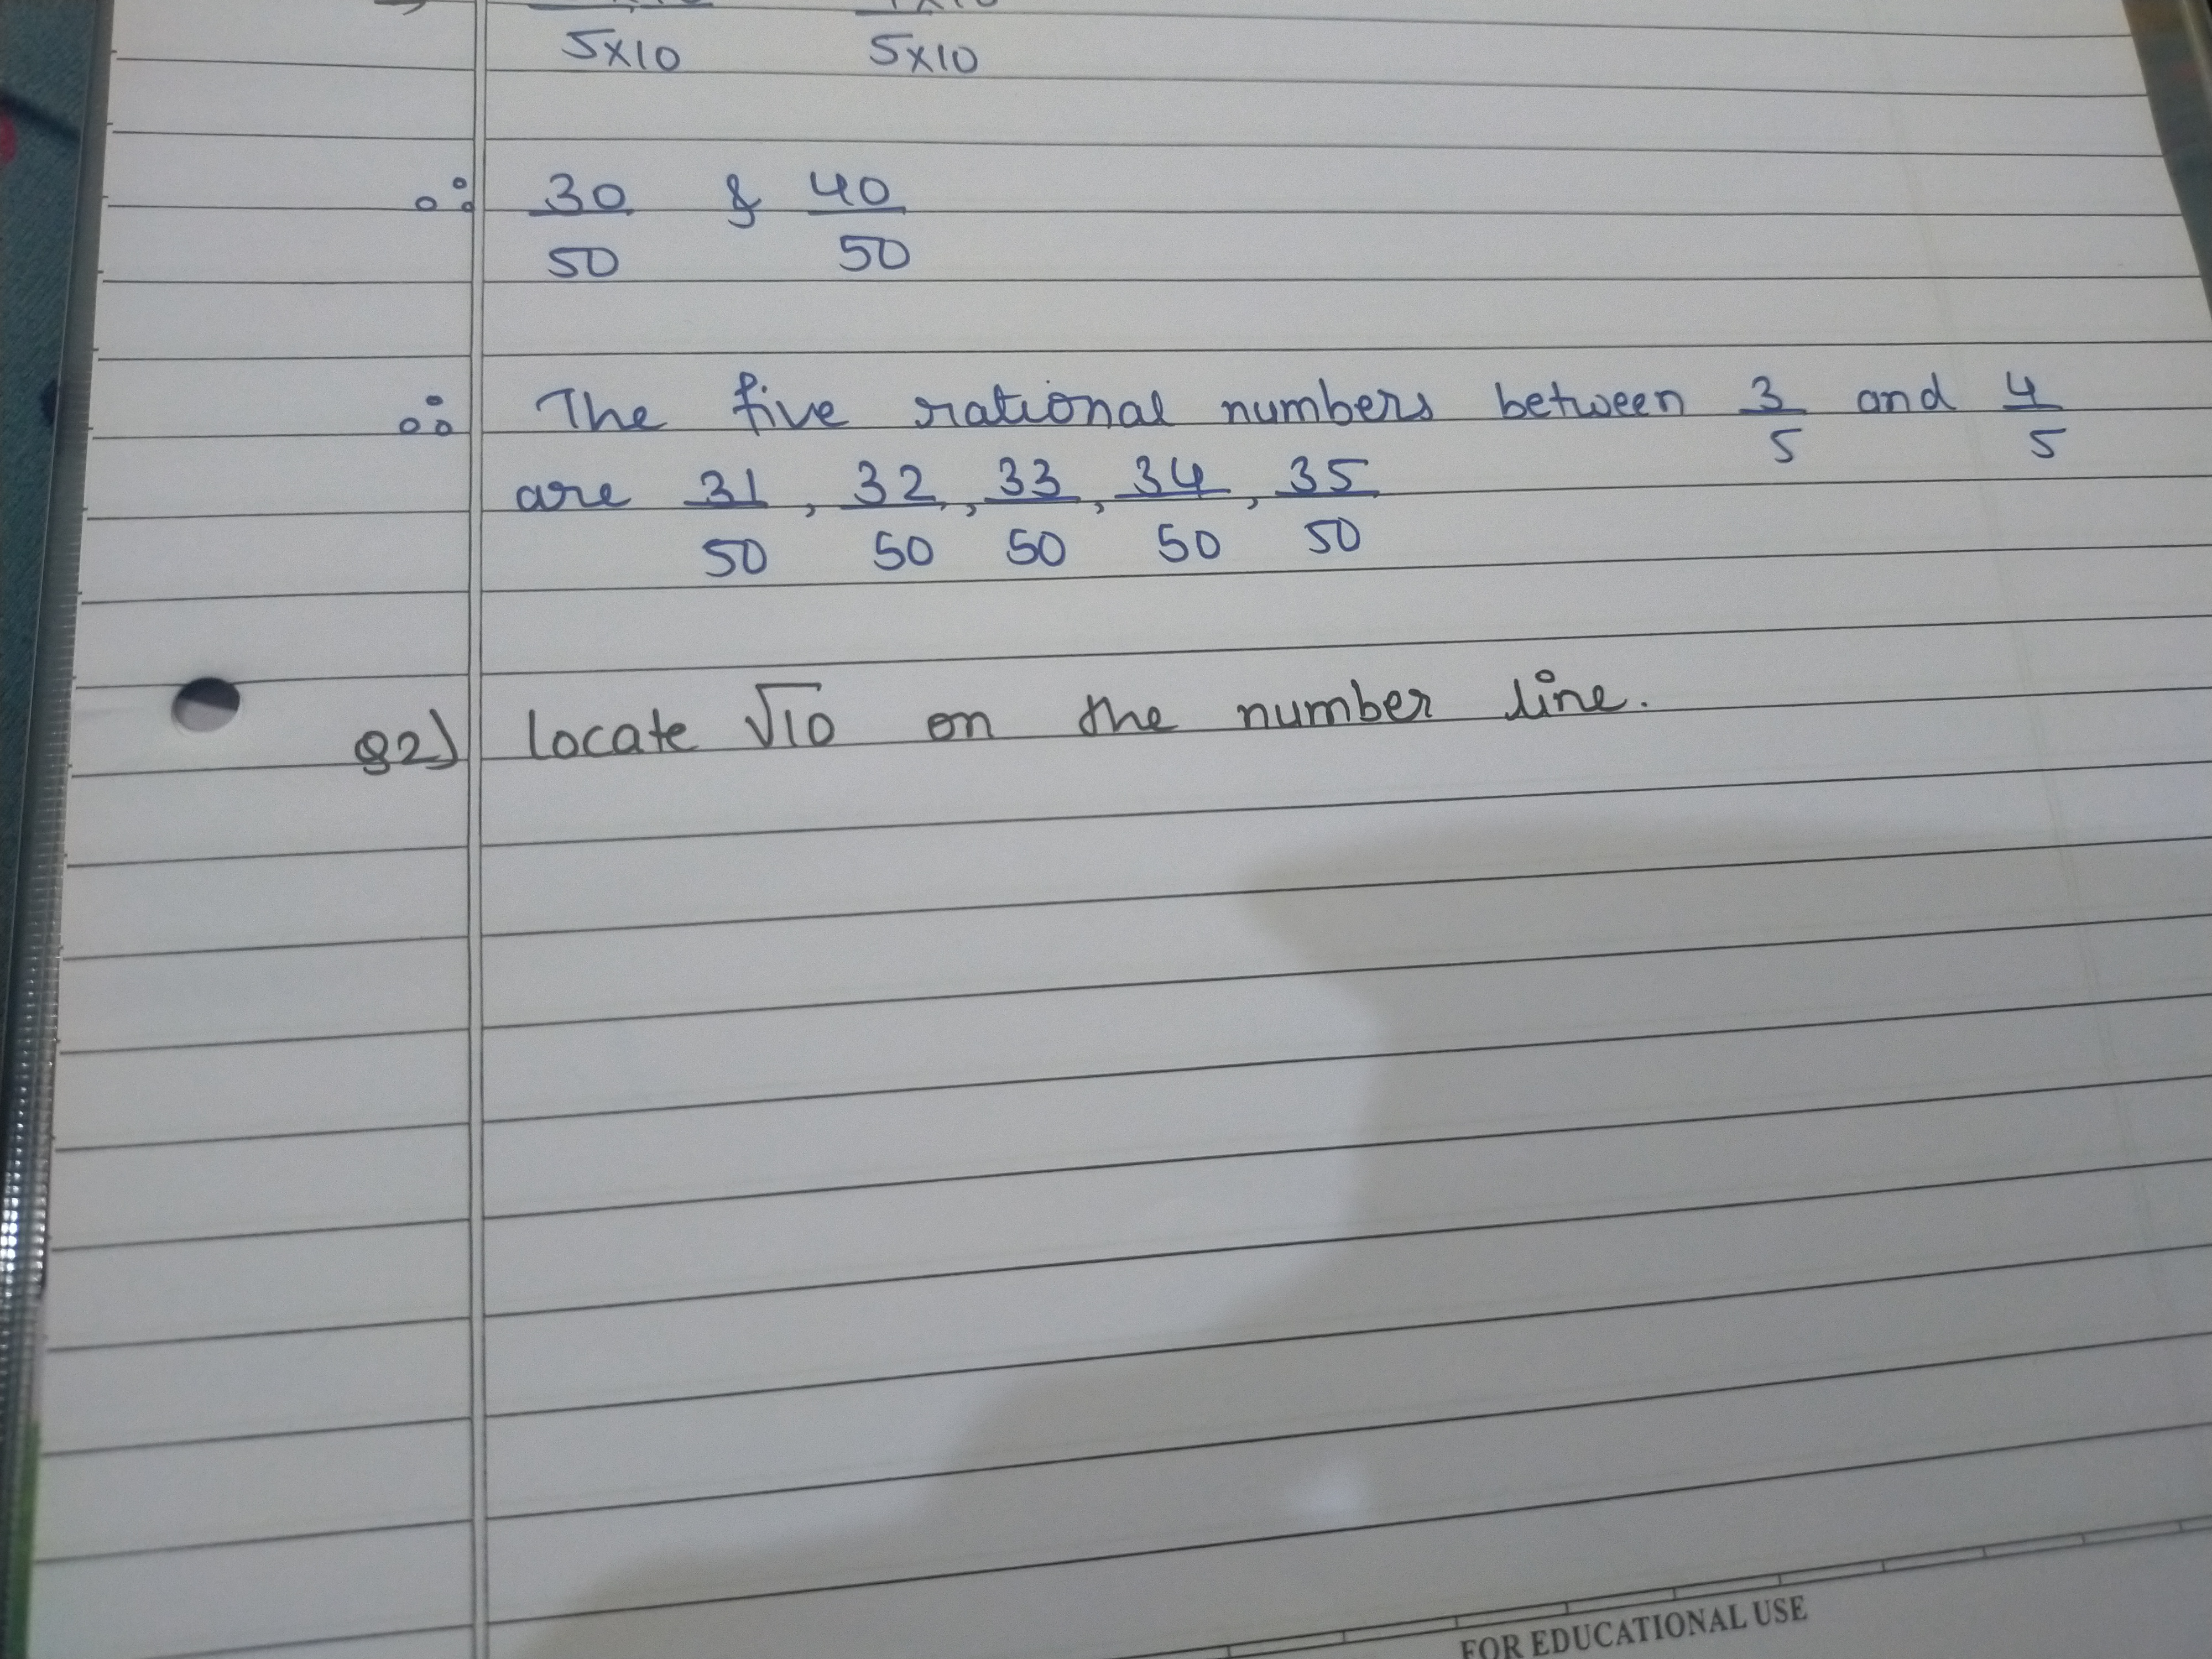 5×10 5×10
∴ 30 & 40
50 50
∴ The five rational numbers between 3 and 4
5 5
are 31, 32, 33, 34, 35
50 50 50 50 50
Q2) locate √10 on the number line.
FOR EDUCATIONAL USE